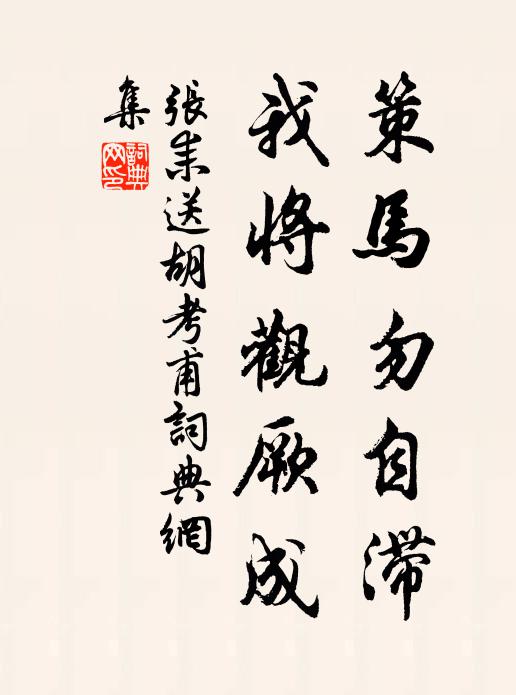 策馬勿自滯
我將觀厥成
張耒送胡考甫詞典網
集
詞典網印